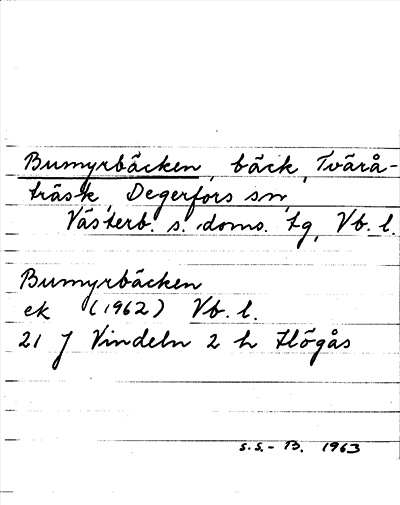 Bumyrbäcken, bäck, Tvärå-
träsk, Degerfors sn,
Västerb. s. doms. tg, Vb. l.
Bumyrbäcken
ek (1962) Vb. l.
21 J Vindeln 2 h Högås
S.S.-B. 1963